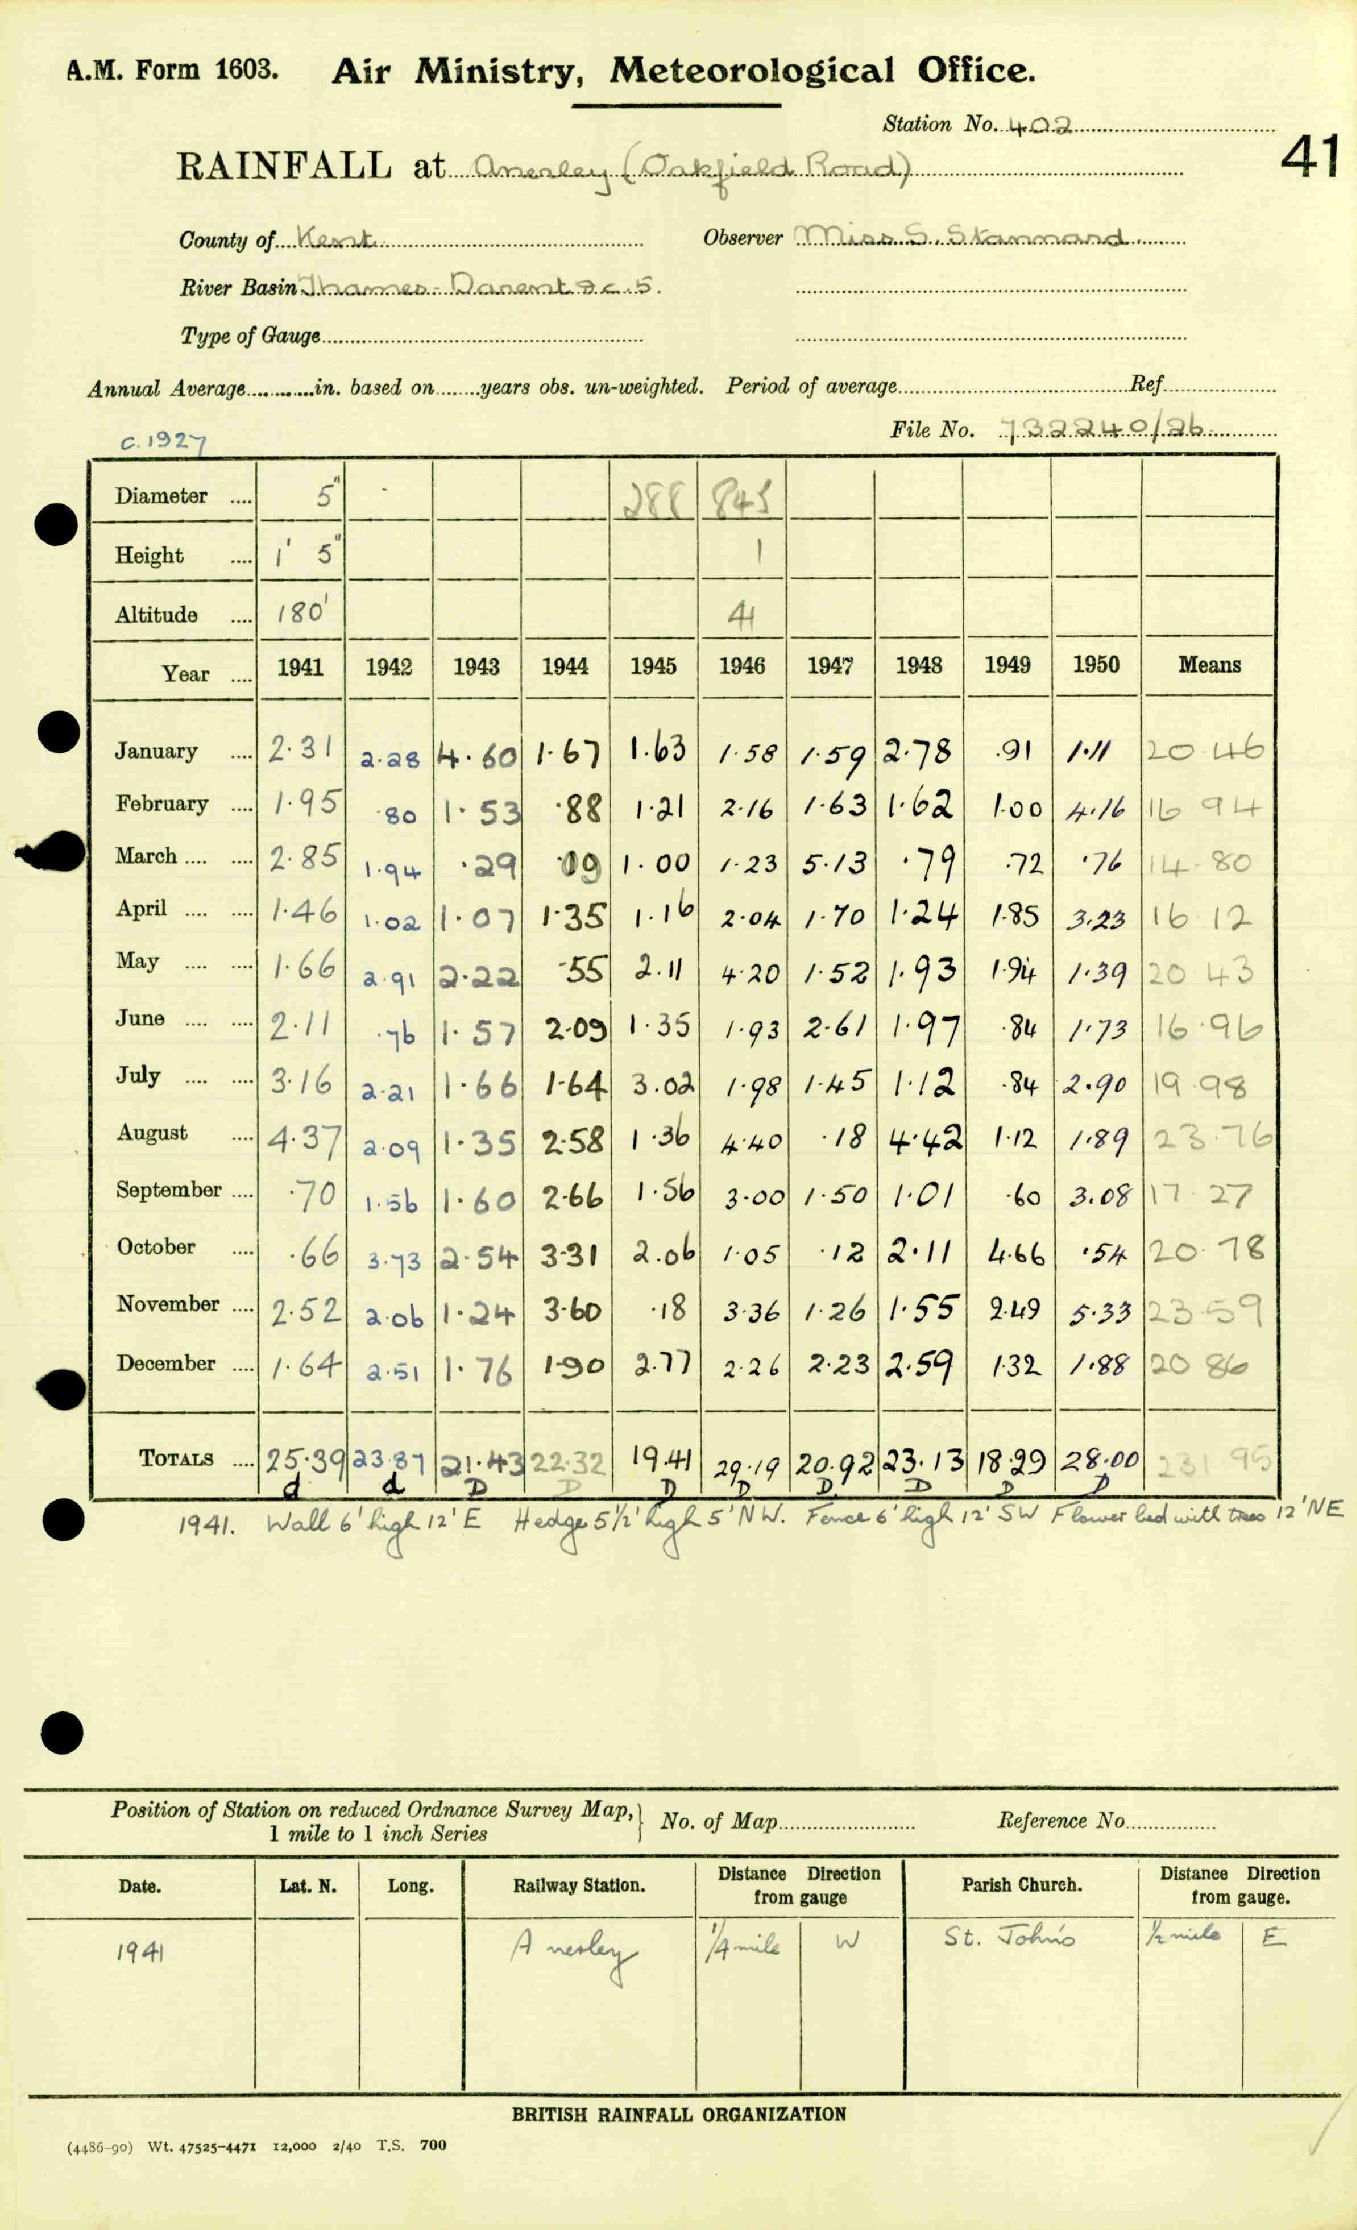 A.M. Form 1603. Air Ministry, Meteorological Office.
Station No. 402
41
RAINFALL at Anerley (Oakfield Road)
County of Kent Observer Miss S. Stannard
River Basin Thames - Darent &c. 5.
Type of Gauge
Annual Average in. based on years obs. un-weighted. Period of average Ref
File No. 732240/26
c. 1927
Diameter .... 5" 288 845
Height .... 1' 5" 1
Altitude .... 180' 41
Year .... 1941 1942 1943 1944 1945 1946 1947 1948 1949 1950 Means
January .... 2.31 2.28 4.60 1.67 1.63 1.58 1.59 2.78 .91 1.11 20.46
February .... 1.95 .80 1.53 .88 1.21 2.16 1.63 1.62 1.00 4.16 16 94
March .... .... 2.85 1.94 .29 .09 1.00 1.23 5.13 .79 .72 .76 14.80
April .... .... 1.46 1.02 1.07 1.35 1.16 2.04 1.70 1.24 1.85 3.23 16 12
May .... .... 1.66 2.91 2.22 .55 2.11 4.20 1.52 1.93 1.94 1.39 20 43
June .... .... 2.11 .76 1.57 2.09 1.35 1.93 2.61 1.97 .84 1.73 16.96
July .... .... 3.16 2.21 1.66 1.64 3.02 1.98 1.45 1.12 .84 2.90 19 98
August .... 4.37 2.09 1.35 2.58 1.36 4.40 .18 4.42 1.12 1.89 23.76
September .... .70 1.56 1.60 2.66 1.56 3.00 1.50 1.01 .60 3.08 17 27
October .... .66 3.73 2.54 3.31 2.06 1.05 .12 2.11 4.66 .54 20.78
November .... 2.52 2.06 1.24 3.60 .18 3.36 1.26 1.55 2.49 5.33 23.59
December .... 1.64 2.51 1.76 1.90 2.77 2.26 2.23 2.59 1.32 1.88 20 86
TOTALS .... 25.39 23.87 21.43 22.32 19.41 29.19 20.92 23.13 18.29 28.00 231 95
d d D D D D D. D D D
1941. Wall 6' high 12' E Hedge 5½' high 5' NW. Fence 6' high 12' SW Flower bed with trees 12' NE
Position of Station on reduced Ordnance Survey Map,} No. of Map Reference No.
1 mile to 1 inch Series
Date. Lat. N. Long. Railway Station. Distance Direction from gauge Parish Church. Distance Direction from gauge.
1941 Anerley ¼ mile W St. John's ½ mile E
BRITISH RAINFALL ORGANIZATION
(4486-90) Wt. 47525-4471 12,000 2/40 T.S. 700